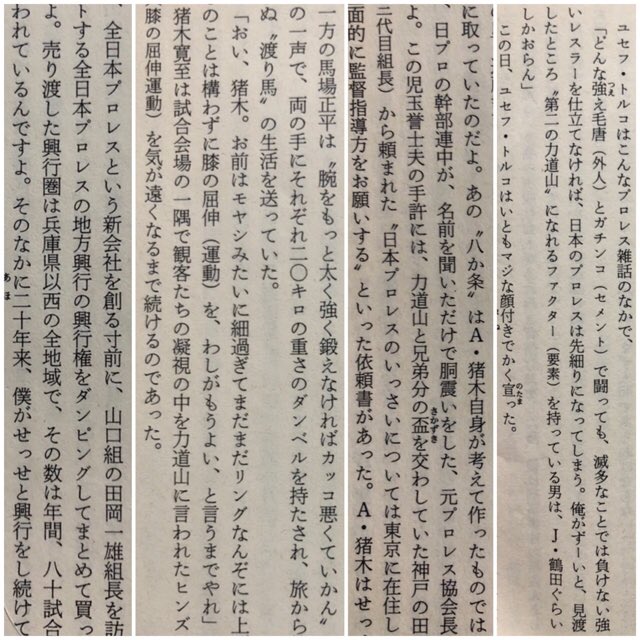 ユセフ・トルコはこんなプロレス雑話のなかで、
「どんな強え毛唐（外人）とガチンコ（セメント）で闘っても、滅多なことでは負けない強
いレスラーを仕立てなければ、日本のプロレスは先細りになってしまう。俺がずーいと、見渡
したところ〝第二の力道山〟になれるファクター（要素）を持っている男は、J・鶴田ぐらい
しかおらん」
この日、ユセフ・トルコはいともマジな顔付きでかく宣った。
に取っていたのだよ。あの〝八か条〟はA・猪木自身が考えて作ったものでは
、日プロの幹部連中が、名前を聞いただけで胴震いをした、元プロレス協会長
よ。この児玉誉士夫の手許には、力道山と兄弟分の盃を交わしていた神戸の田
三代目組長）から頼まれた〝日本プロレスのいっさいについては東京に在住し
面的に監督指導方をお願いする〟といった依頼書があった。A・猪木はせっ
一方の馬場正平は〝腕をもっと太く強く鍛えなければカッコ悪くていかん〟
の一声で、両の手にそれぞれ二〇キロの重さのダンベルを持たされ、旅から
ぬ〝渡り馬〟の生活を送っていた。
「おい、猪木。お前はモヤシみたいに細過ぎてまだまだリングなんぞには上
のことは構わずに膝の屈伸（運動）を、わしがもうよい、と言うまでやれ」
猪木寛至は試合会場の一隅で観客たちの凝視の中を力道山に言われたヒンズ
（膝の屈伸運動）を気が遠くなるまで続けるのであった。
、全日本プロレスという新会社を創る寸前に、山口組の田岡一雄組長を訪
トする全日本プロレスの地方興行の興行権をダンピングしてまとめて買っ
よ。売り渡した興行圏は兵庫県以西の全地域で、その数は年間、八十試合
われているんですよ。そのなかに二十年来、僕がせっせと興行をし続けて